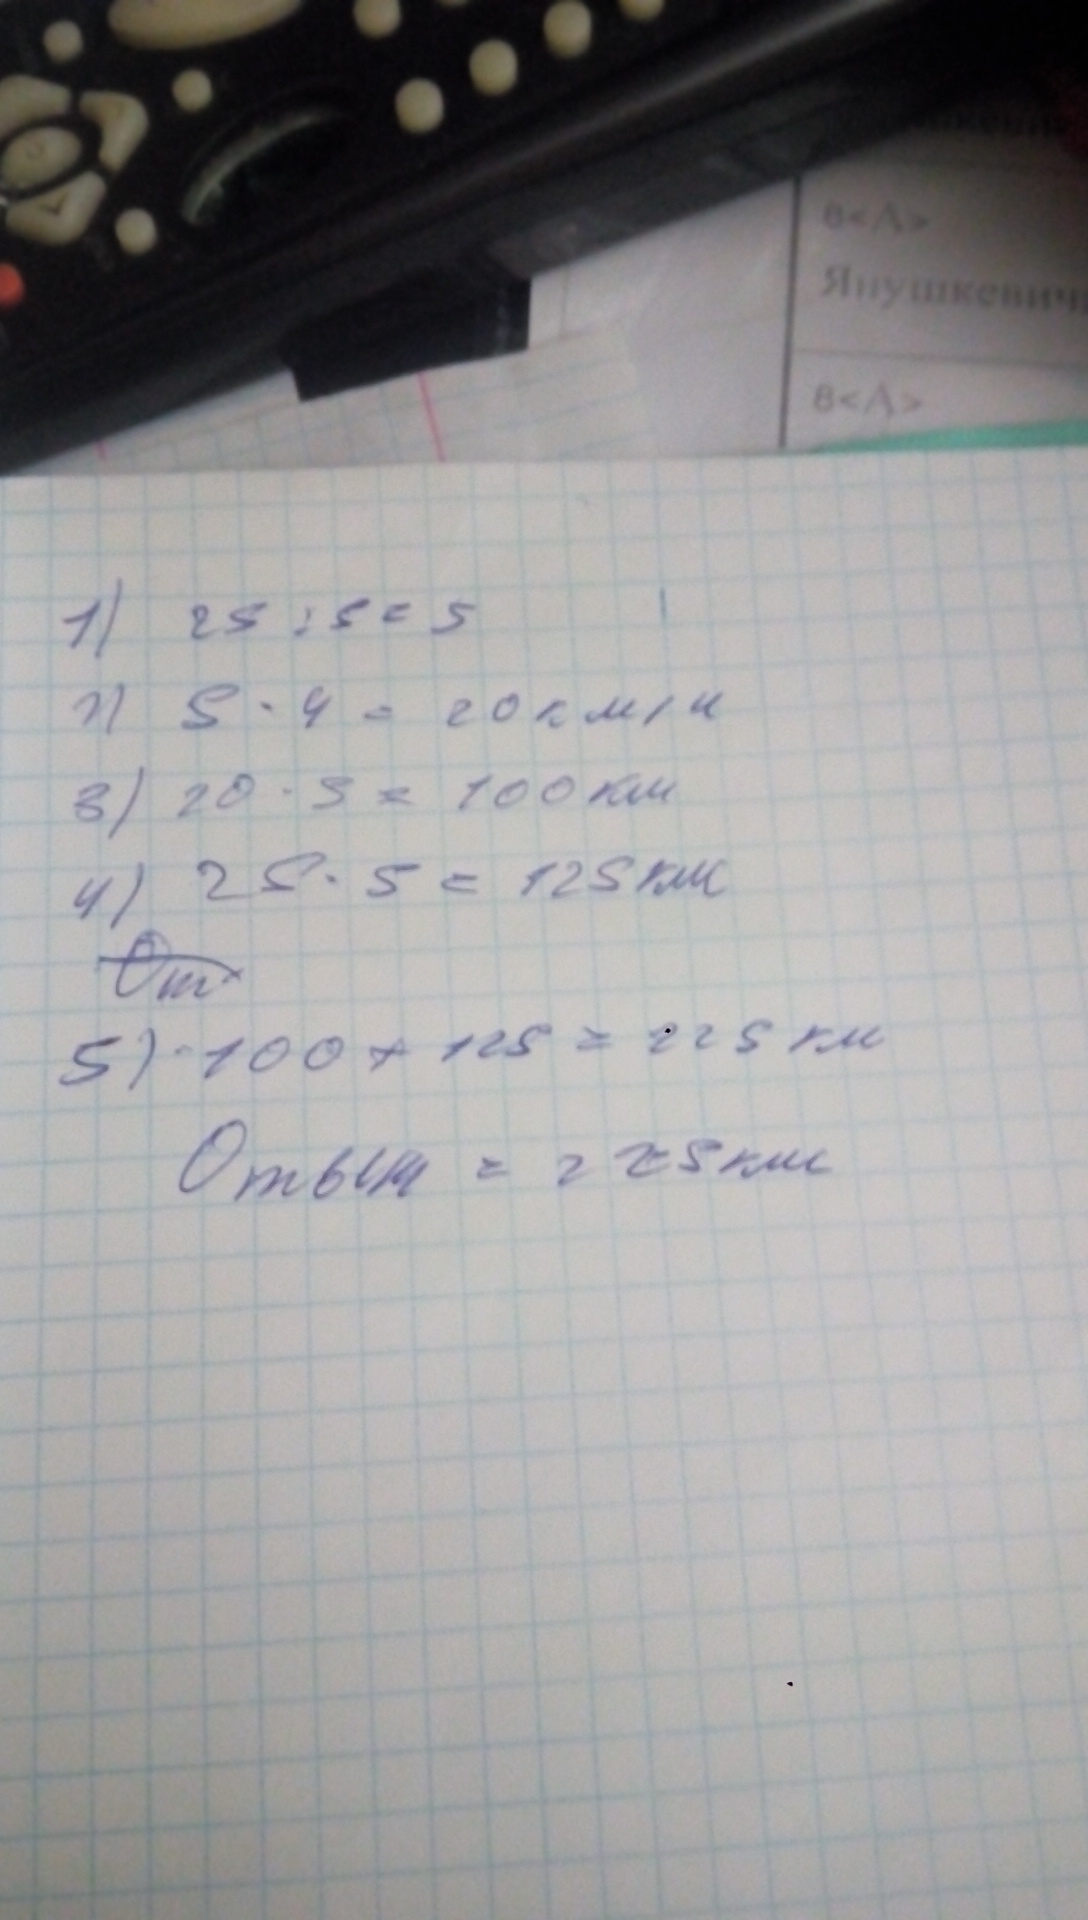 8<А>
Янушкевич
8<А>
1) 25 : 5 = 5
2) 5 · 4 = 20 км/ч
3) 20 · 5 = 100 км
4) 25 · 5 = 125 км
От
5) 100 + 125 = 225 км
Ответ = 225 км